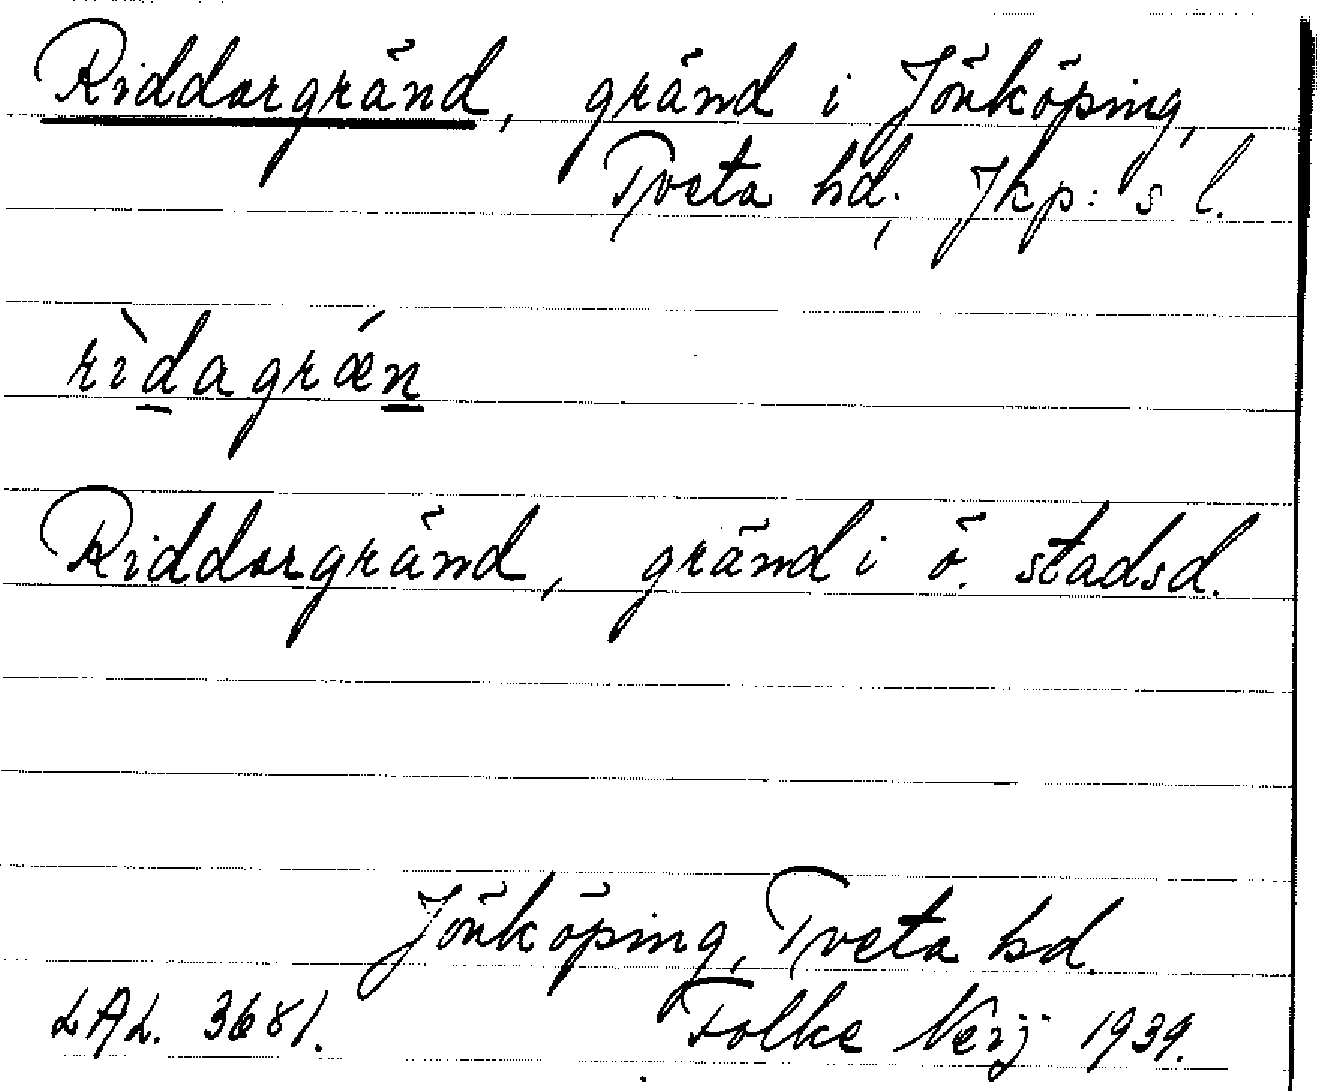 Riddargränd, gränd i Jönköping,
Tveta hd, Jkp:s l.
rìdagrǽn
Riddargränd, gränd i ö. stadsd.
Jönköping, Tveta hd.
LAL. 3681. Folke Nerj 1939.